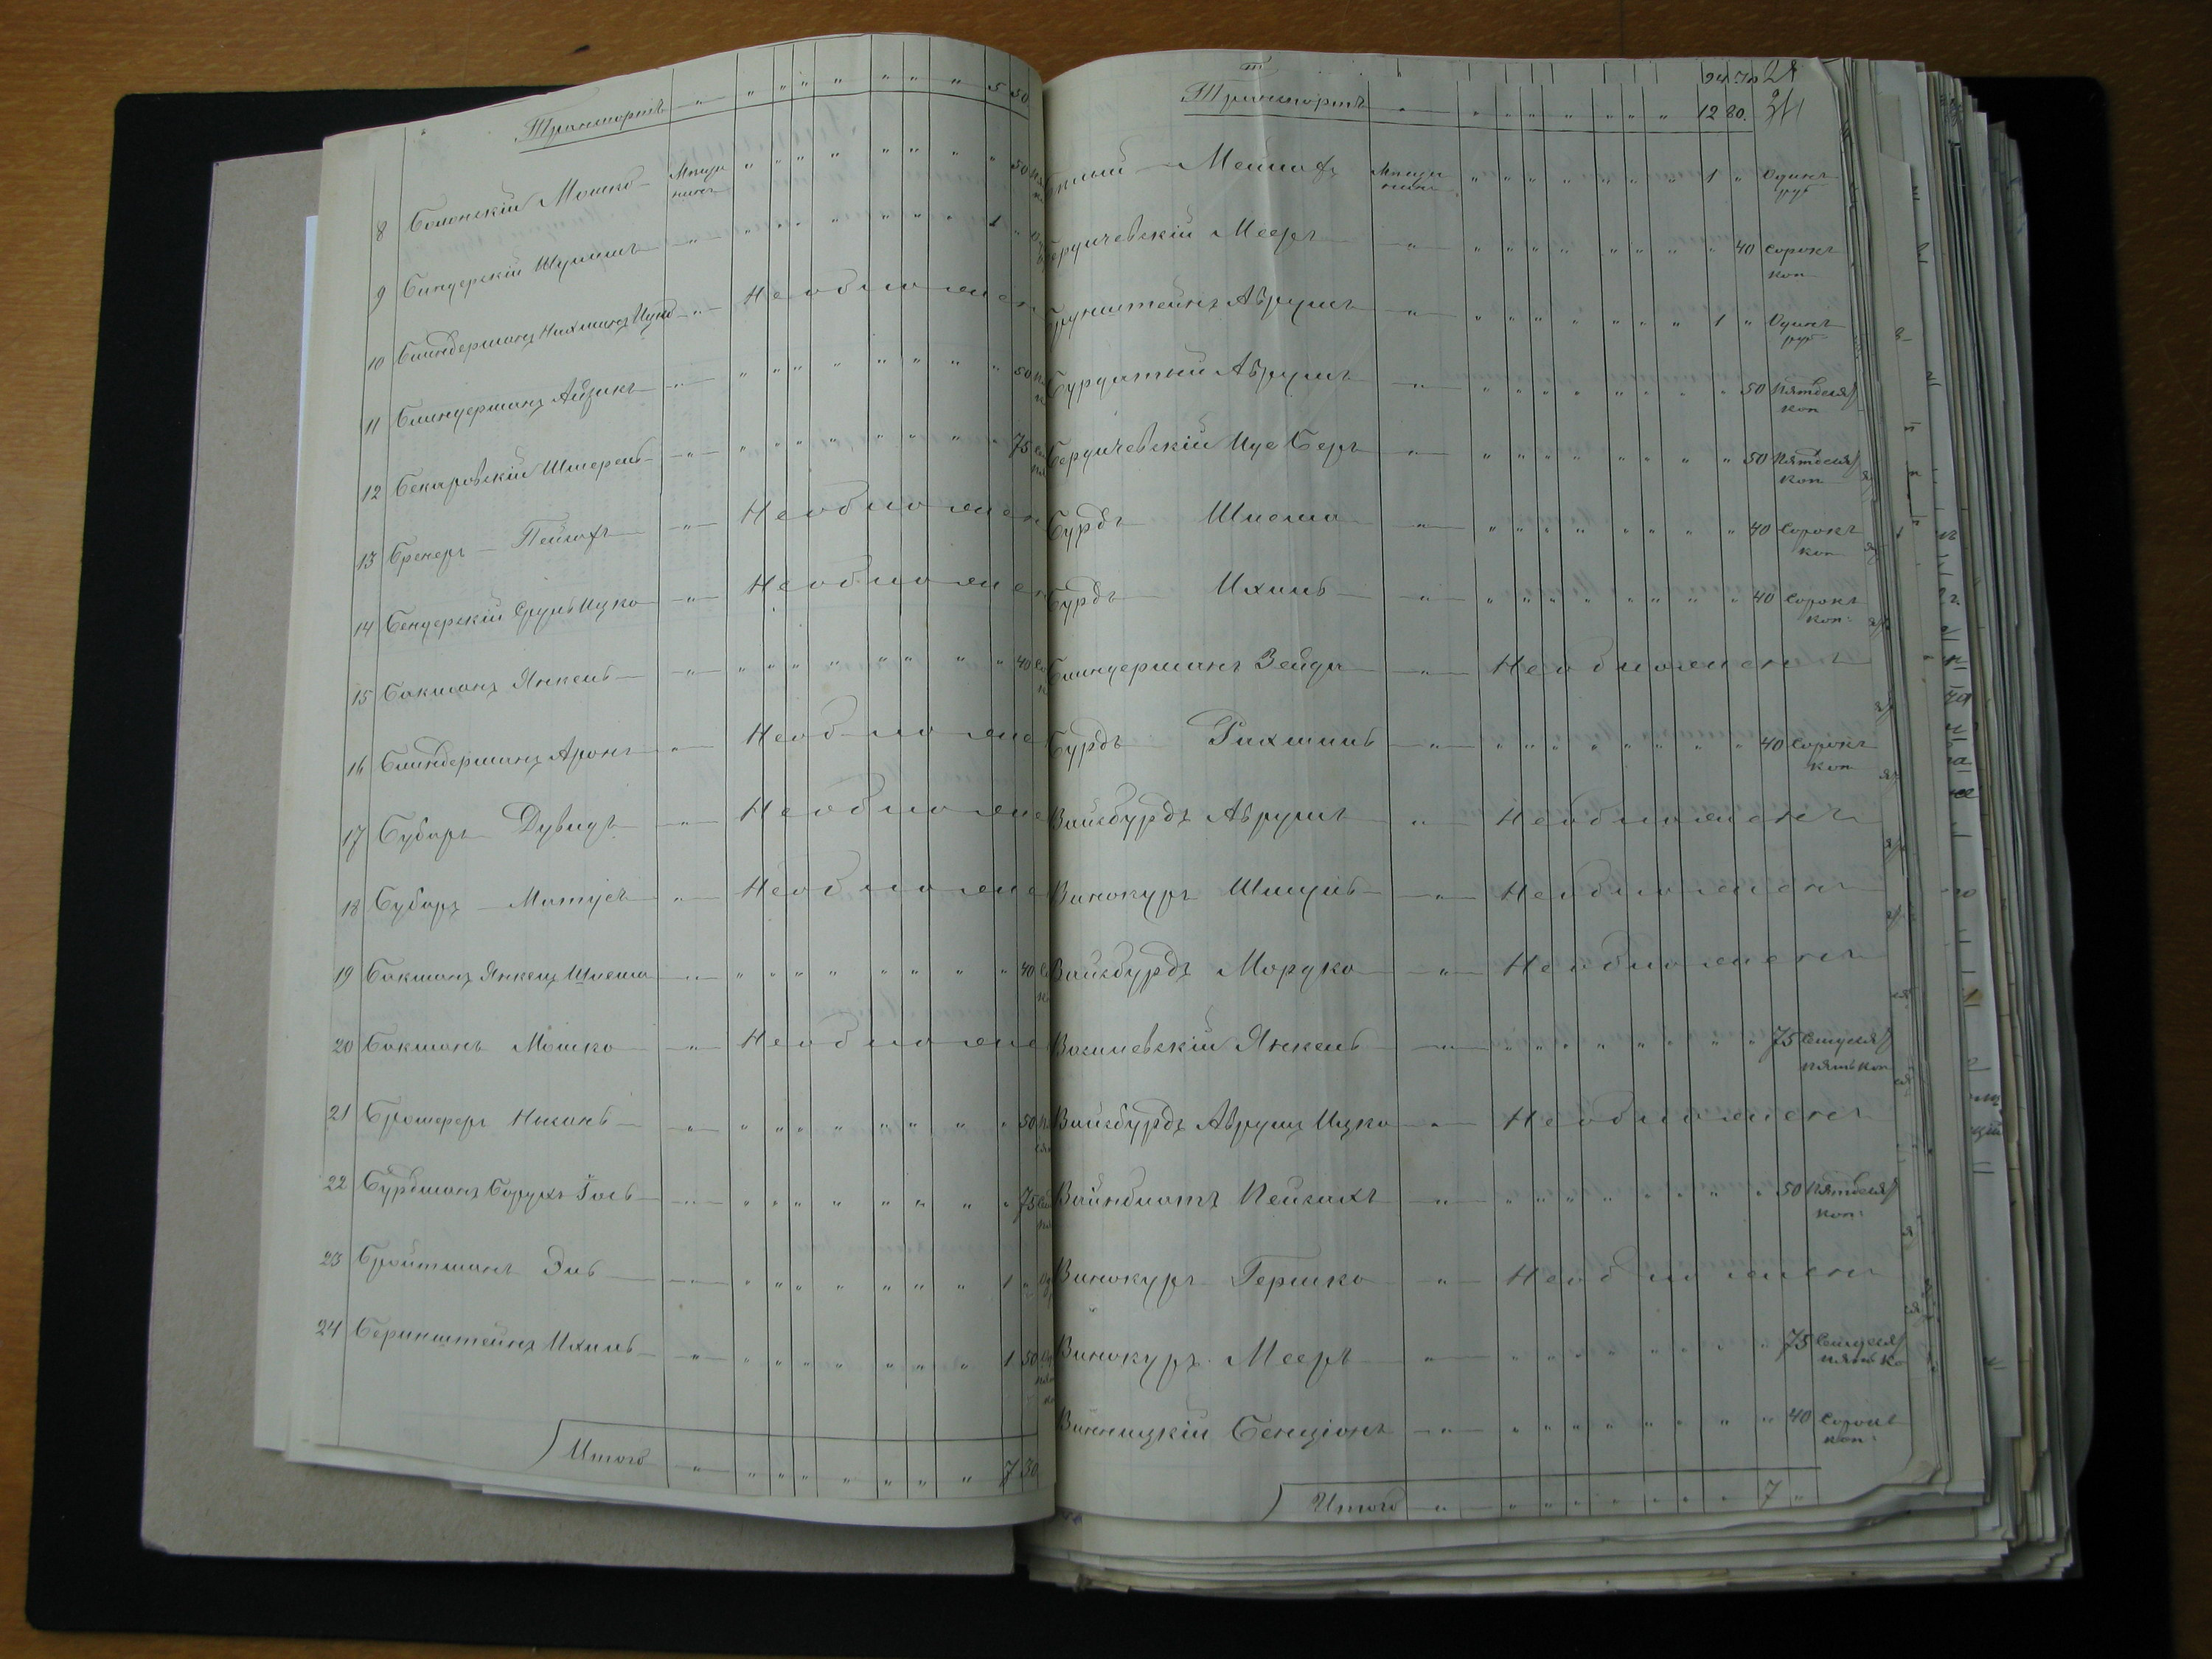 Транспортъ " " " " " " " " 5 50
8 Болонскій Мошко Мѣща нинъ " " " " " " " " 50
9 Биндерскій Шулимъ " " " " " " " " 1 "
10 Блиндерманъ Нахманъ Иуд " Необложен
11 Блиндерманъ Айзикъ " " " " " " " " " 50
12 Бекаровскій Шмерель " " " " " " " " " 75
13 Бренеръ Пейсахъ " Необложен
14 Бендерскій Сруль Ицко " Необложен
15 Бакманъ Янкель " " " " " " " " " 40
16 Блиндерманъ Аронъ " Необложе
17 Бубаръ Дувидъ " Необложе
18 Бубаръ Матусъ " Необложе
19 Бакманъ Янкель Шлема " " " " " " " " " 40
20 Бакманъ Мошко " Необложе
21 Бромферъ Нысань " " " " " " " " " 50
22 Бурдманъ Борухъ Іось " " " " " " " " " 75
23 Бройтманъ Эль " " " " " " " " 1 "
24 Беринштейнъ Ихиль " " " " " " " " 1 50
Итого " " " " " " " " 7 30
28
Транспортъ " " " " " " " " 12 80.
Бѣлый Меилахъ Мѣща нинъ " " " " " " " 1 " Одинъ руб
Бердичевскій Мееръ " " " " " " " " " 40 Сорокъ коп
Брунштейнъ Аврумъ " " " " " " " " 1 " Одинъ руб
Бурдатый Аврумъ " " " " " " " " " 50 Пятдеся коп
Бердичевскій Иде Беръ " " " " " " " " " 50 Пятдеся коп
Бурдъ Шлема " " " " " " " " " 40 Сорокъ коп
Бурдъ Ихиль " " " " " " " " " 40 Сорокъ коп:
Блиндерманъ Зейда " Необложенъ
Бурдъ Рахмиль " " " " " " " " " 40 Сорокъ коп
Вайсбурдъ Аврумъ " Необложенъ
Винокуръ Шмуль " Необложенъ
Вайсбурдъ Мордко " Необложенъ
Василевскій Янкель " " " " " " " " " 75 Семдеся пять коп
Вайсбурдъ Аврумъ Ицко " Необложенъ
Вайнблатъ Пейсахъ " " " " " " " " " 50 Пятдеся коп:
Винокуръ Гершко " Необложенъ
Винокуръ Мееръ " " " " " " " " " 75 Семдеся пять ко
Винницкій Бенціонъ " " " " " " " " " 40 Сорокъ коп:
Итого " " " " " " " " 7 "